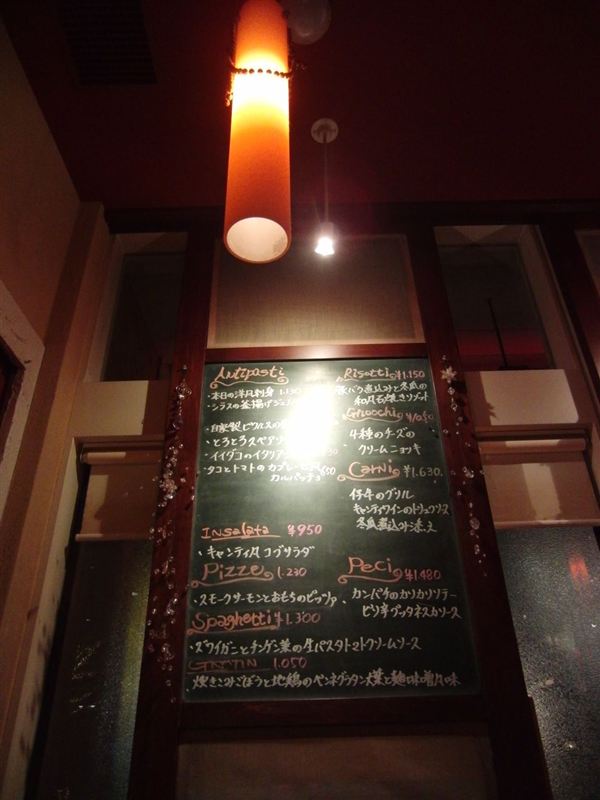 Antipasti
・本日の洋風刺身 1.150
・シラスの釜揚げ
・自家製ピクルスの
・とうとう
・イイダコのイタリア
・タコとトマトのカプレーゼ風 650
カルパッチョ
Insalata ¥950
・キャンティ風コブサラダ
Pizze 1.230
・スモークサーモンとおもちのピッツァ
Spaghetti ¥1.300
・ズワイガニとチンゲン菜の生パスタトマトクリームソース
GRATIN 1.050
・炊きこみごぼうと地鶏のペンネグラタン 八丁と麺味噌風味
Risotti ¥1.150
豚バラ煮込みと冬瓜の
和風石焼きリゾット
Gnocchi ¥1050
4種のチーズの
クリームニョッキ
Carni ¥1.630
仔牛のグリル
キャンティワインのトリュフソース
冬瓜煮込み添え
Peci ¥1480
カンパチのカリカリソテー
ピリ辛プッタネスカソース